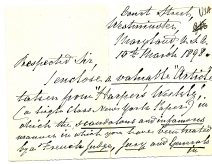 Court Street,
Westminster,
Maryland U.S.A.
15th March 1898.
Respected Sir,
I enclose a valuable "Article
taken from "Harper's Weekly"
(a high class New York Paper) in
which the scandalous and infamous
manner in which you have been treated
by a French Judge, Jury and Generals